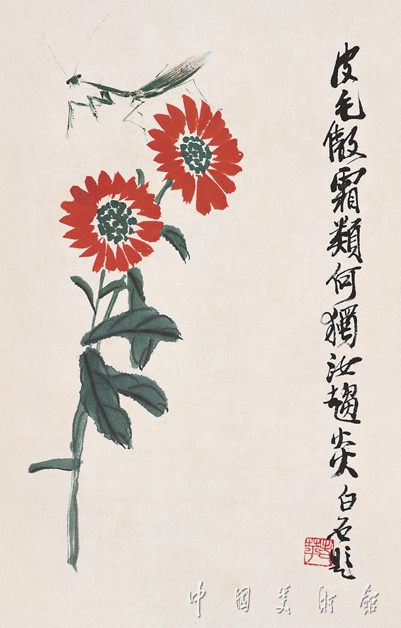 皮毛傲霜類何獨汝趨炎白石題
中國美術館